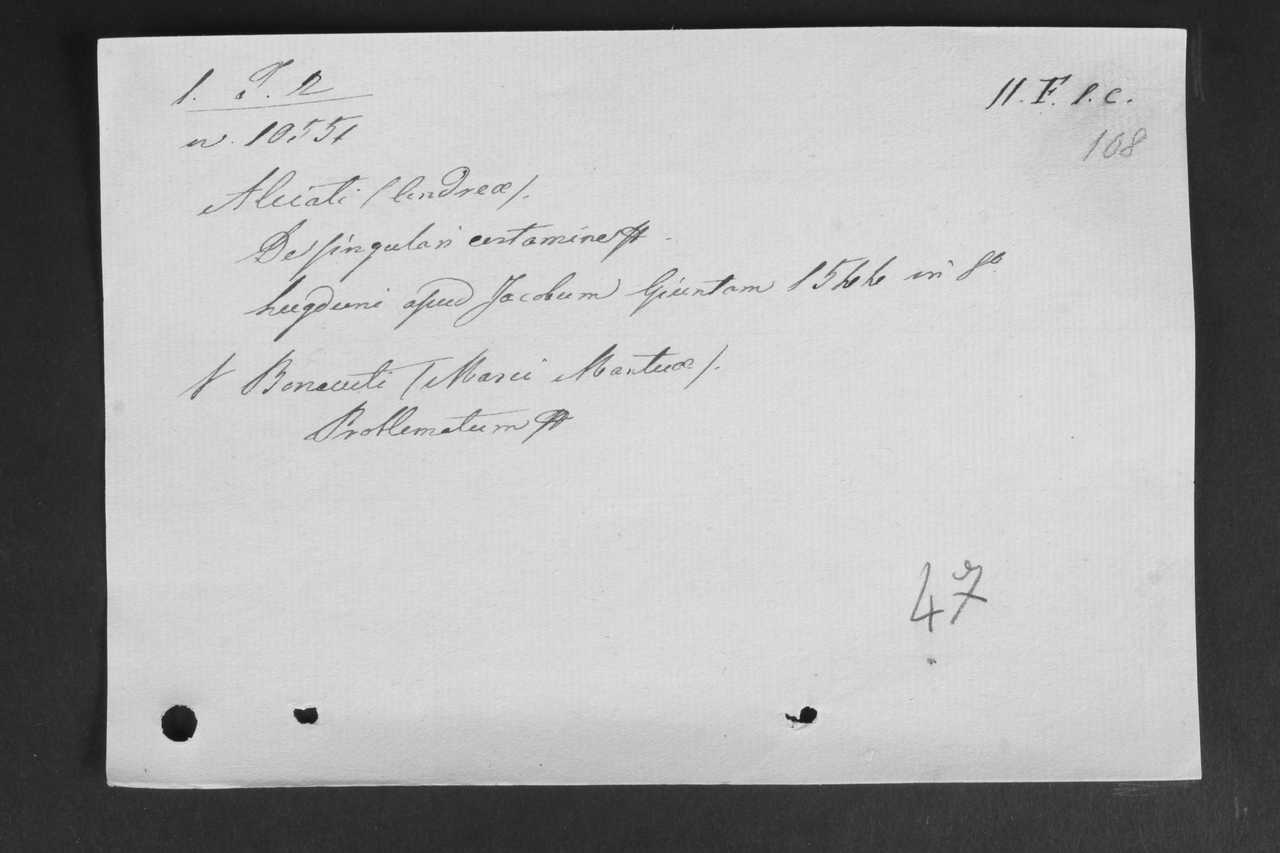 1. J. 12
11. F. 1. c.
n. 10551
108
Alciati (Andreæ).
De singulari certamine &.
Lugduni apud Jacobum Giuntam 1544 in 8º
V Benaviti (Marci Mantuæ).
Problematum &
47